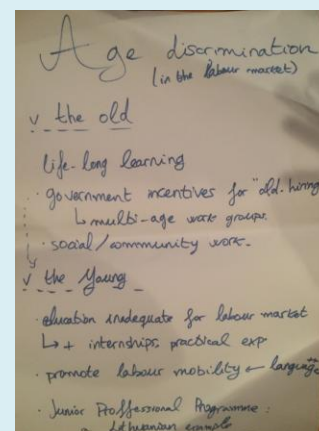 Age discrimination
(in the labour market)
v the old
life-long learning
· government incentives for "old-hiring
↳ multi-age work groups.
· social/community work.
v the Young
· education inadequate for labour market
↳ + internships, practical exp
· promote labour mobility ← language
· Junior Proffessional Programme :
Lithuanian example